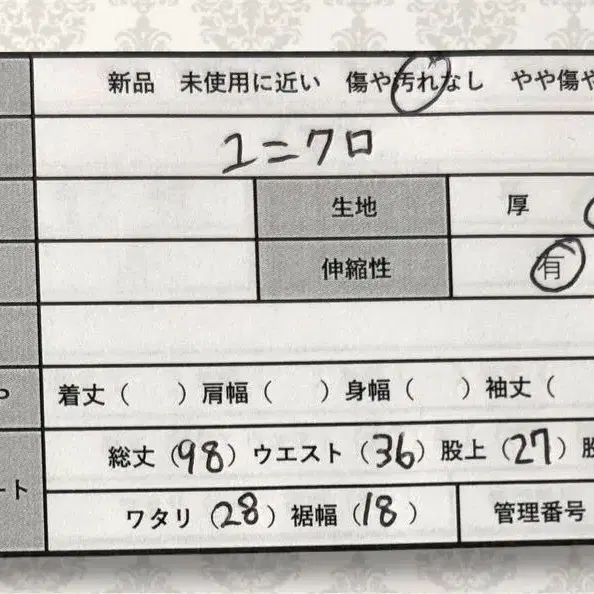 新品 未使用に近い 傷や汚れなし やや傷や
ユニクロ
生地 厚
伸縮性 有
着丈（ ）肩幅（ ）身幅（ ）袖丈（
総丈（98）ウエスト（36）股上（27）股
ート
ワタリ（28）裾幅（18） 管理番号